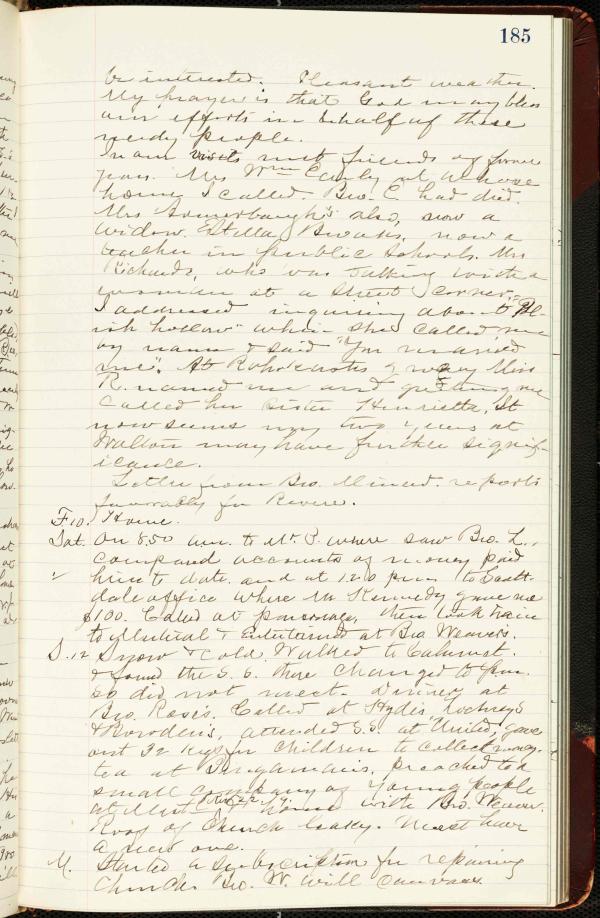 185
be interested. Pleasant weather.
My prayer is that God may bless
our efforts in behalf of these
needy people.
In our visits met friends of former
years. Mrs Wm at whose
home I called. Bro. C. had died.
Mrs also, now a
widow. Stella now a
teacher in public schools. Mrs
Richards, who was talking with a
woman at a street corner,
I addressed inquiring about
hollow" when she called me
by name & said "You married
me". At Miss
R. named me and
called her sister Henrietta. It
now seems my two years at
Walton may have further signif-
icance.
Letter from Bro. reports
favorably for Revere.
F. 10. Home.
Sat. On 8.50 am. to Mt. P. where saw Bro. L.,
compared accounts of money paid
him to date. and at 1.20 pm to
dale office where Mr Kennedy gave me
$100. Called at parsonage, then took train
to Mutual & entertained at Bro Weavers.
S. 12 Snow & cold. Walked to Calumet.
& found the S. S. there changed to pm.
so did not meet. Dinner at
Bro. Rose's. Called at
& attended S.S. at "United", gave
out 32 for children to collect money.
tea at preached to a
small company of young people
at home with Bro. Weaver.
Roof of Church leaky. Must have
a new one.
M. Started a subscription for repairing
church. Bro. W. will canvass.